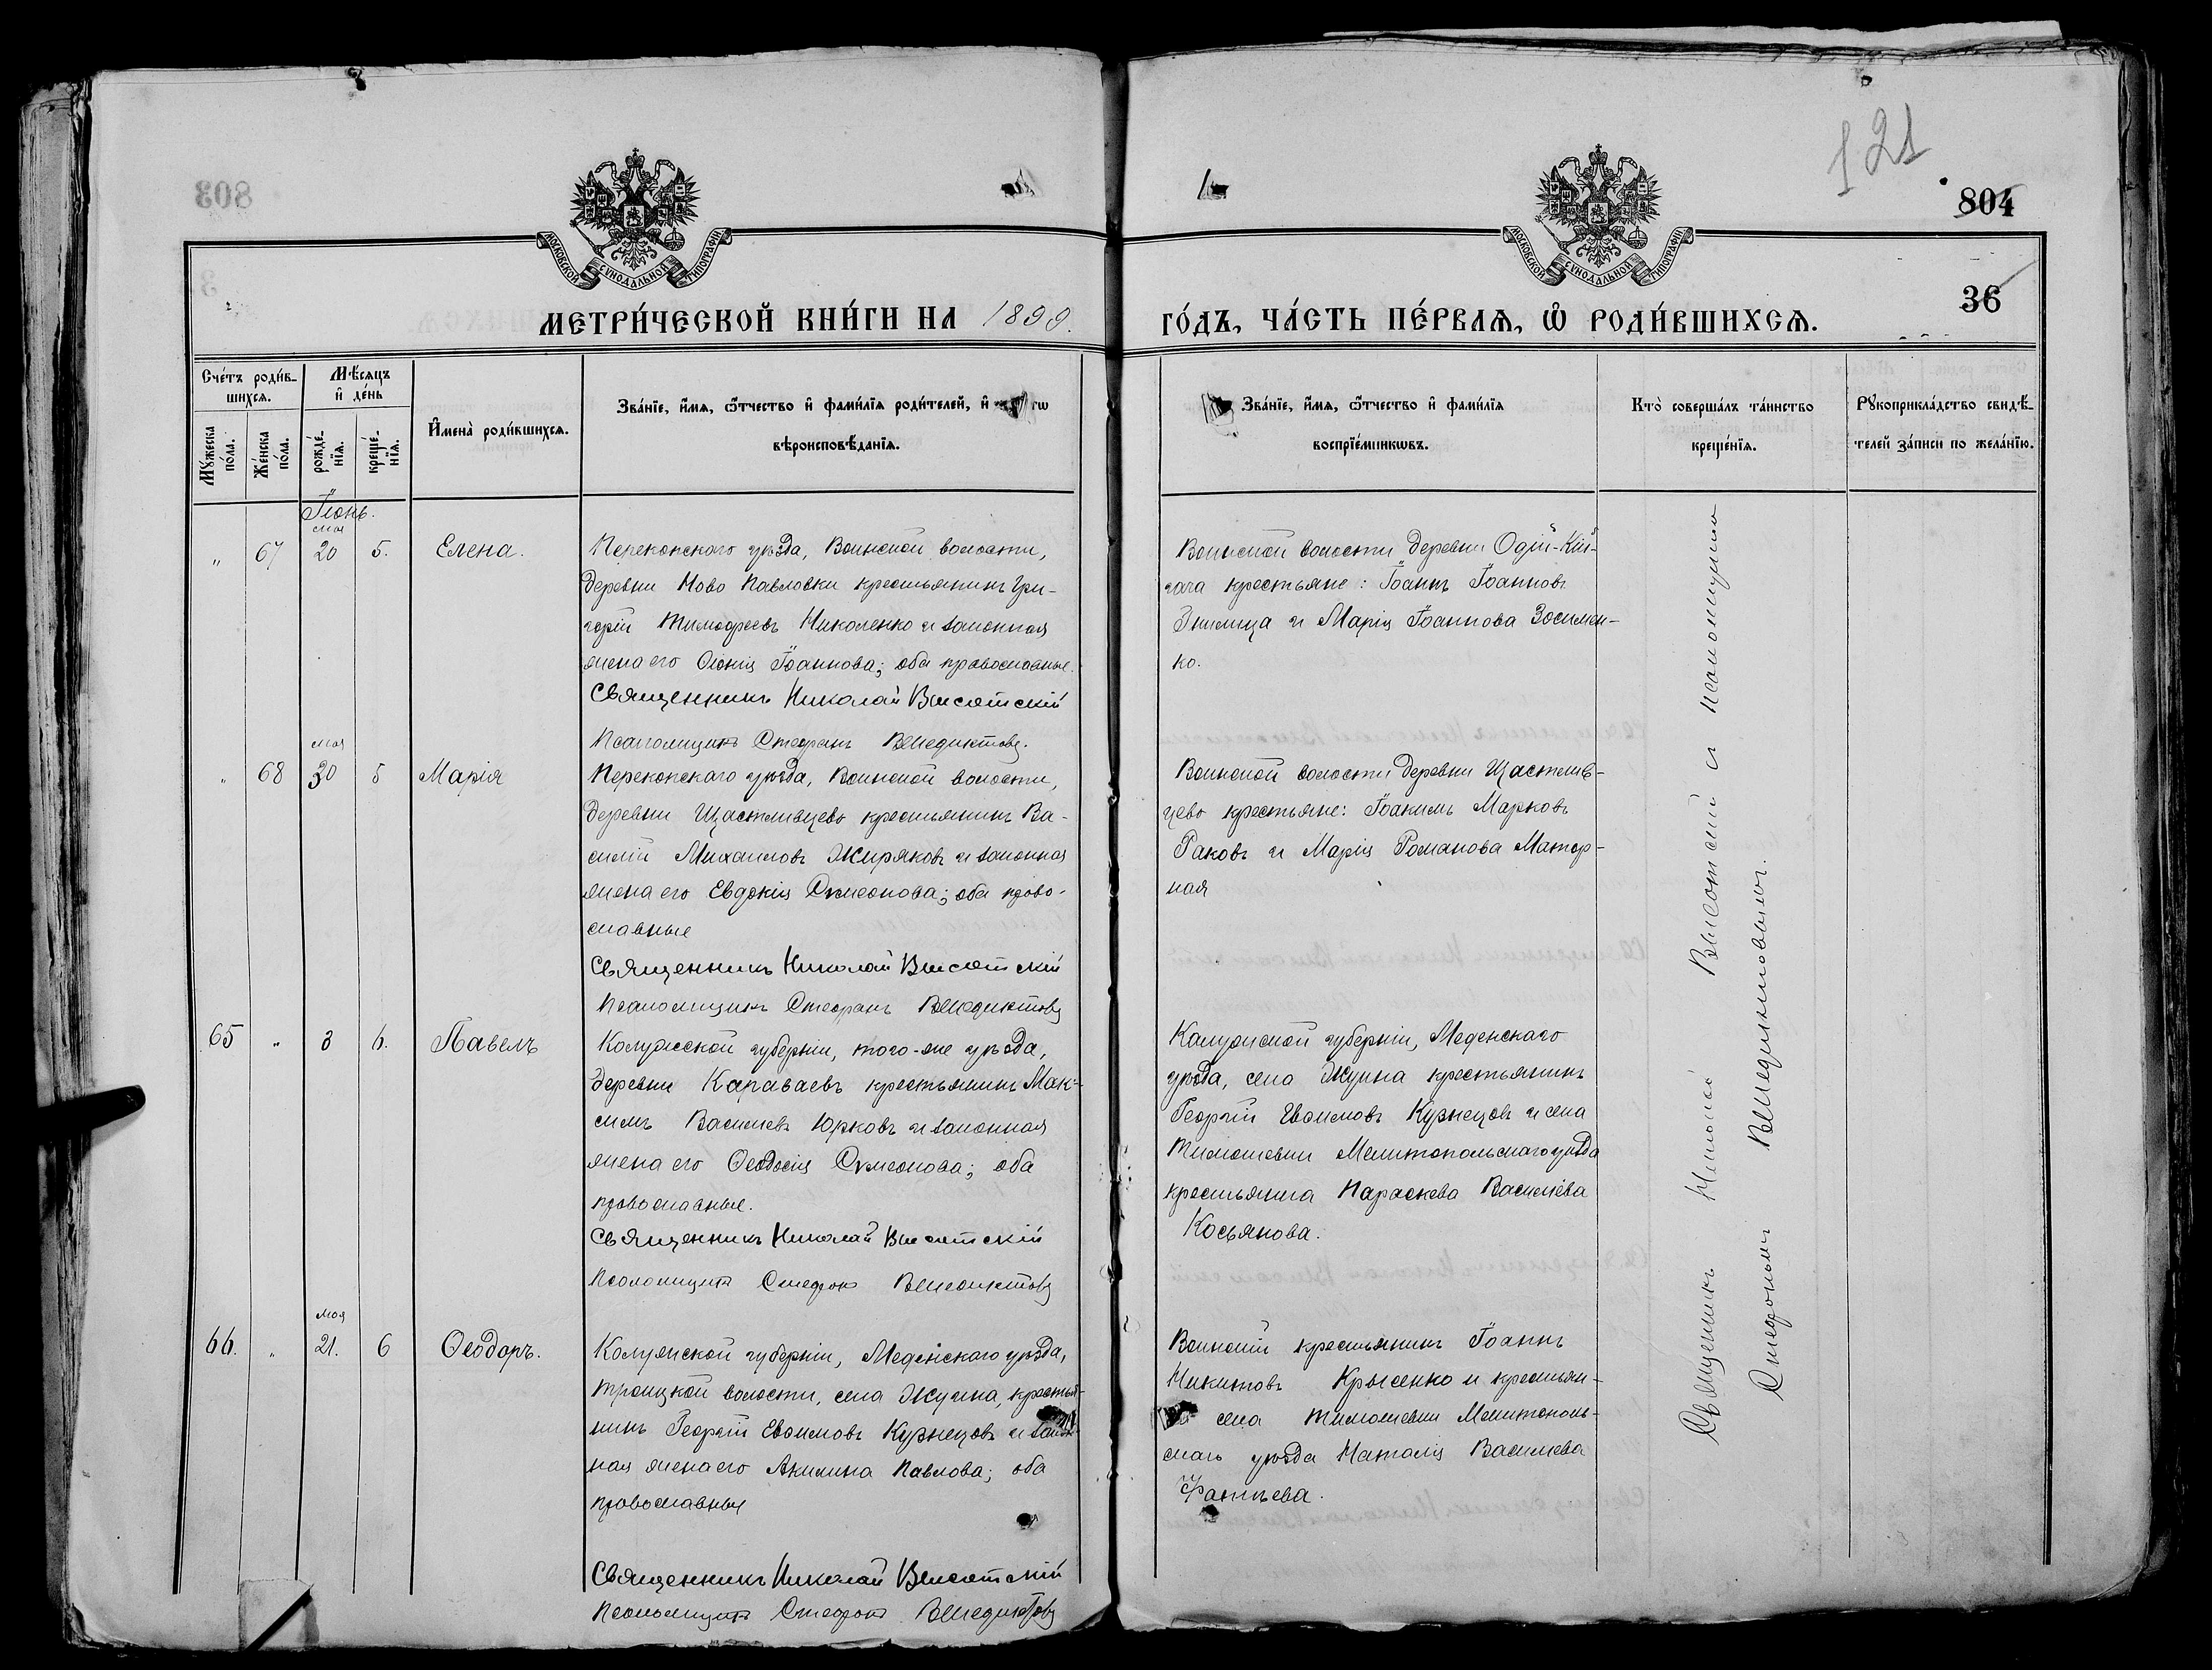 121
804
36
МОСКОВСКОЙ СѴНОДАЛЬНОЙ ТИПОГРАФІИ
МОСКОВСКОЙ СѴНОДАЛЬНОЙ ТИПОГРАФІИ
МЕТРИ́ЧЕСКОЙ КНИ́ГИ НА 1899.
ГО́ДЪ, ЧА́СТЬ ПЕ́РВАѦ, Ѡ҆ РОДИ́ВШИХСѦ.
Сче́тъ роди́в-
шихсѧ.
Мѣ́сѧцъ
и҆ де́нь
Мꙋ́жеска по́ла.
Же́нска по́ла.
рожде́-нїѧ.
креще́-нїѧ.
И҆мена̀ роди́вшихсѧ.
Зва́нїе, и҆́мѧ, ѻ҆́тчество и҆ фами́лїѧ роди́телей, и҆
вѣроисповѣ́данїѧ.
Зва́нїе, и҆́мѧ, ѻ҆́тчество и҆ фами́лїѧ
воспрїе́мникѡвъ.
Кто̀ соверша́лъ та́инство
креще́нїѧ.
Рꙋкоприкла́дство свидѣ́-
телей за́писи по жела́нїю.
Іюнь.
мая
„ 67 20 5. Елена.
Перекопскаго уѣзда, Воинской волости,
деревни Ново Павловки крестьянинъ Гри-
горій Тимофеевъ Николенко и законная
жена его Ѳеонія Іоаннова; оба православные.
Священникъ Николай Высотскій
Псаломщикъ Стефанъ Венедиктовъ.
Воинской волости деревни Одій-Кій-
гача крестьяне: Іоаннъ Іоанновъ
и Марія Іоаннова Зосимен-
ко.
мая
„ 68 30 5 Марія
Перекопскаго уѣзда, Воинской волости,
деревни Щастливцево крестьянинъ Ва-
силій Михаиловъ Жиряковъ и законная
жена его Евдокія Сѵмеонова; оба право-
славные
Священникъ Николай Высотскій
Псаломщикъ Стефанъ Венедиктовъ
Воинской волости деревни Щастлив-
цево крестьяне: Іоакимъ Марковъ
Раковъ и Марія Романова Матор-
ная
65 „ 3 6. Павелъ
Калужской губерніи, того-же уѣзда,
деревни Караваевъ крестьянинъ Мак-
симъ Васильевъ Юрковъ и законная
жена его Ѳеодосія Сѵмеонова; оба
православные.
Священникъ Николай Высотскій
Псаломщикъ Стефанъ Венедиктовъ
Калужской губерніи, Меденскаго
уѣзда, села Жуина крестьянинъ
Георгій Евѳимовъ Кузнецовъ и села
Тимошевки Мелитопольскаго уѣзда
крестьянка Параскева Васильева
Косьянова.
мая
66. „ 21. 6 Ѳеодоръ.
Калужской губерніи, Меденскаго уѣзда,
Троицкой волости, села Жуина, крестья-
нинъ Георгій Евѳимовъ Кузнецовъ и закон-
ная жена его Акилина Павлова; оба
православные
Священникъ Николай Высотскій
Псаломщикъ Стефанъ Венедиктовъ
Воинскій крестьянинъ Іоаннъ
Никитовъ Крысенко и крестьян-
ка села Тимошевки Мелитополь-
скаго уѣзда Наталія Васильева
Фатѣева.
Священникъ Николай Высотскій и псаломщикъ
Стефанъ Венедиктовъ.